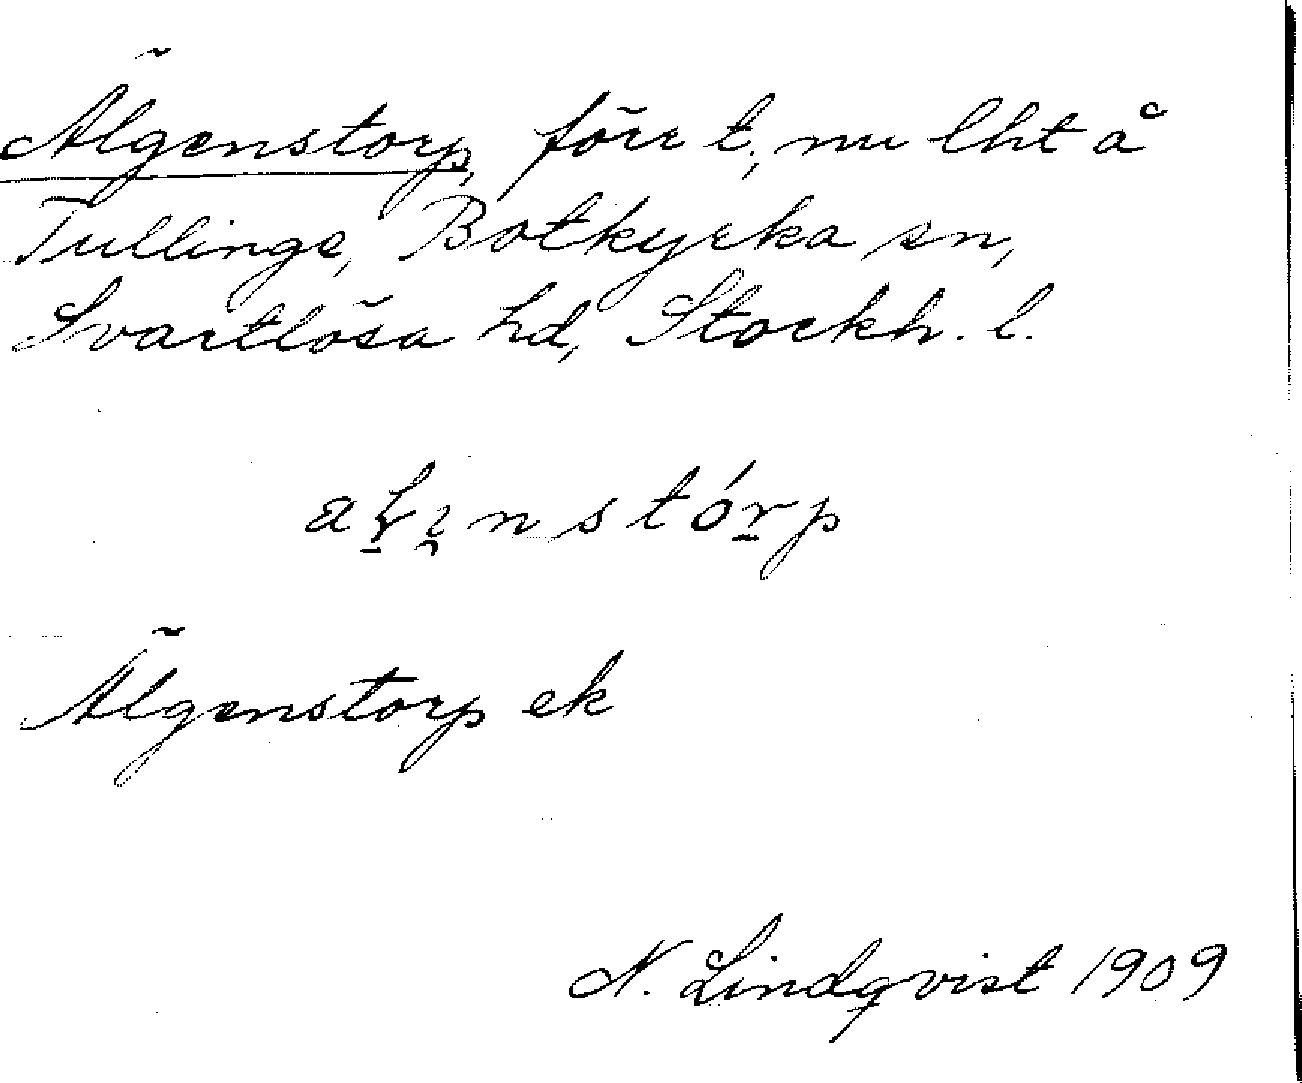 Älgenstorp, förr t., nu lht å
Tullinge, Botkyrka sn,
Svartlösa hd, Stockh. l.
Älgenstorp ek
N. Lindqvist 1909